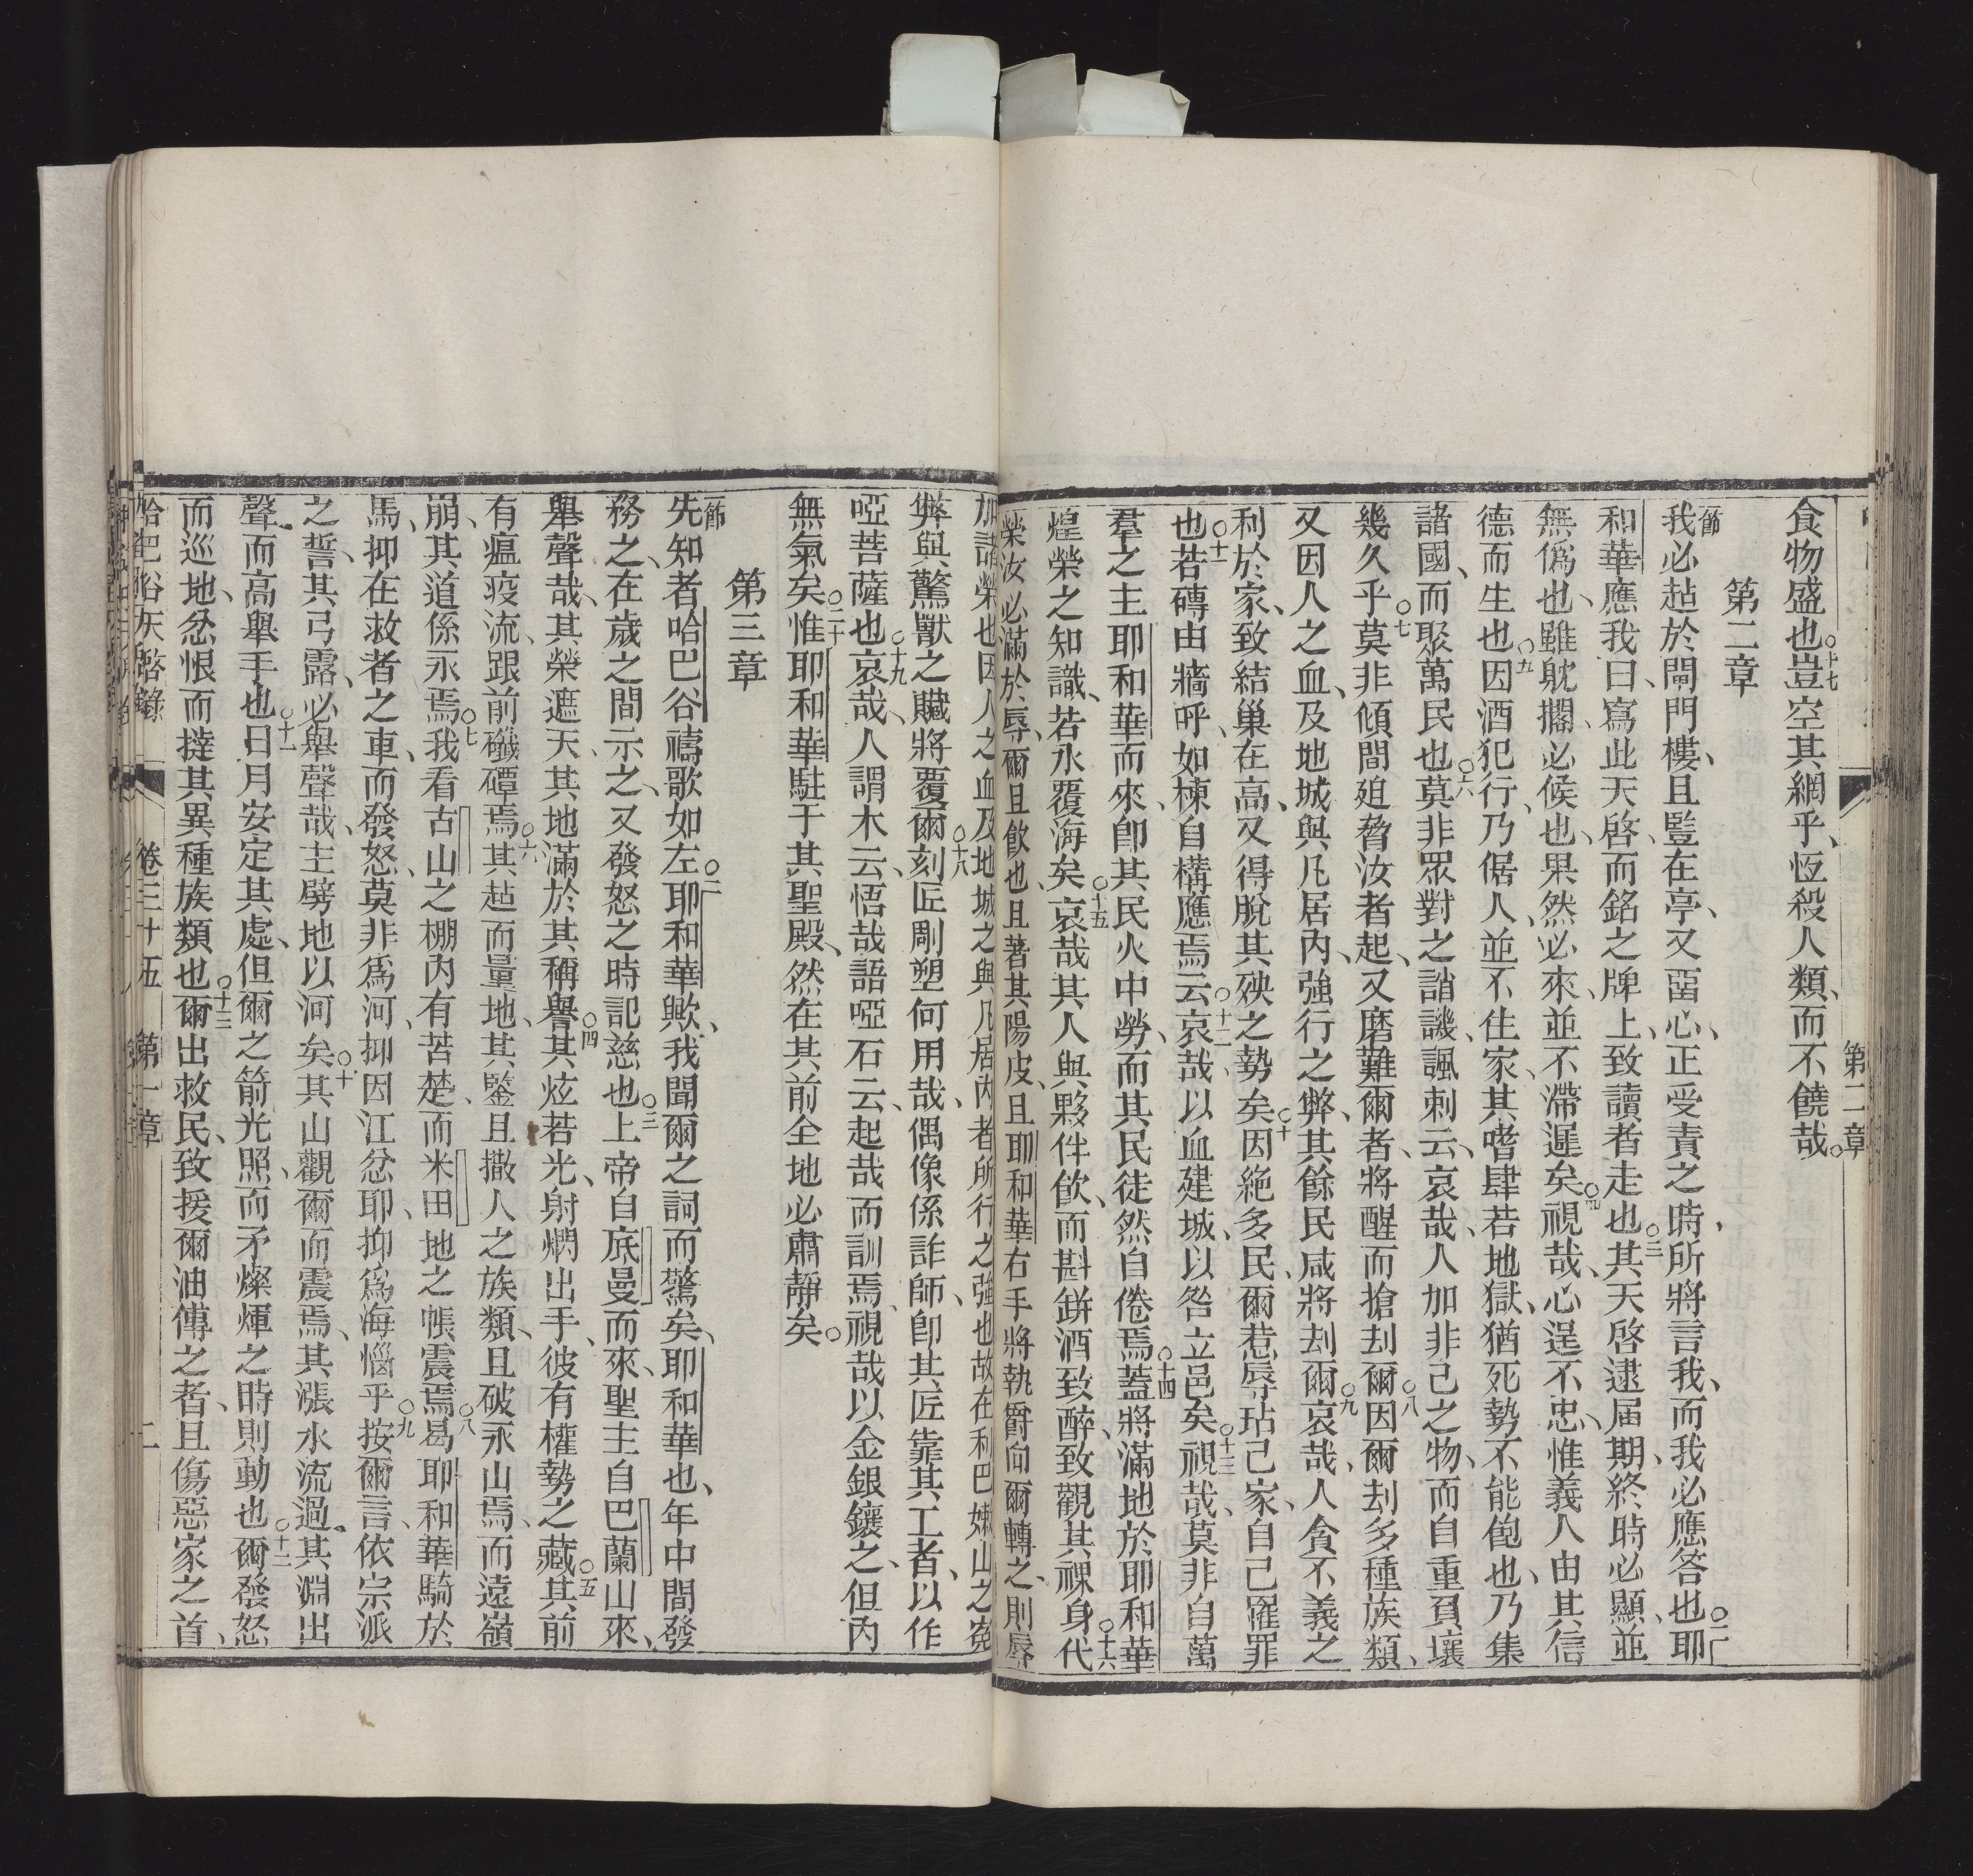 食物盛也○十七豈空其網乎、恆殺人類、而不饒哉。
第二章
節我必趈於閘門樓、且䀡在亭、又畱心、正受責之時、所將言我、而我必應答也○二耶
和華應我曰、寫此天啓、而銘之牌上、致讀者走也○三其天啓逮屆期、終時必顯、並
無僞也、雖躭擱、必候也、果然必來、並不滯遲矣○四視哉、心逞不忠、惟義人由其信
德而生也○五因酒犯行、乃倨人、並不住家、其嗜肆若地獄、猶死勢不能飽也、乃集
諸國、而聚萬民也○六莫非眾對之誚譏、諷刺云、哀哉、人加非己之物、而自重負壤
幾久乎○七莫非傾間𢌥脅汝者起、又磨難爾者、將醒而搶刦爾○八因爾刦多種族類、
又因人之血、及地城與凡居內、強行之弊、其餘民咸將刦爾○九哀哉、人貪不義之
利於家、致結巢在高、又得脫其殃之勢矣○十因絕多民、爾惹辱玷己家、自己罹罪
也○十一若磚由牆呼、如棟自構應焉○十二云、哀哉、以血建城、以咎立邑矣○十三視哉、莫非自萬
羣之主耶和華而來、卽其民火中勞、而其民徒然自倦焉○十四蓋將滿地於耶和華
煌榮之知識、若水覆海矣○十五哀哉、其人與夥伴飲、而斟鉼酒致醉、致觀其裸身○十六代
榮汝必滿於辱、爾且飲也、且著其陽皮、且耶和華右手將執爵向爾轉之、則辱
加諸榮也、因人之血及地城之與凡居內者所行之強也、故在利巴嫩山之冤
弊與驚獸之贓將覆爾○十八刻匠剛塑何用哉、偶像係詐師、卽其匠靠其工者、以作
啞菩薩也○十九哀哉、人謂木云、悟哉、語啞石云、起哉、而訓焉、視哉、以金銀鑲之、但內
無氣矣○二十惟耶和華駐于其聖殿、然在其前全地必肅靜矣。
第三章
節先知者哈巴谷禱歌如左○二耶和華歟、我聞爾之詞而驚矣、耶和華也、年中間發
務之、在歲之間示之、又發怒之時記慈也○三上帝自底曼而來、聖主自巴蘭山來、
舉聲哉、其榮遮天、其地滿於其稱譽○四其炫若光、射燜出手、彼有權勢之藏○五其前
有瘟疫流、跟前礮磹焉○六其趈而量地、其鑒且撒人之族類、且破永山焉、而遠嶺
崩、其道係永焉○七我看古山之棚內有苦楚、而米田地之帳震焉○八曷耶和華騎於
馬、抑在救者之車、而發怒、莫非爲河、抑因江忿耶、抑爲海惱乎○九按爾言、依宗派
之誓、其弓露、必舉聲哉、主劈地以河矣○十其山觀爾而震焉、其漲水流過、其淵出
聲、而高舉手也○十一日月安定其處、但爾之箭光照、而矛燦煇之時則動也○十二爾發怒
而巡地、忿恨而撻其異種族類也○十三爾出救民、致援爾油傅之者、且傷惡家之首、
哈巴谷天啓錄 卷三十五 第一章 二